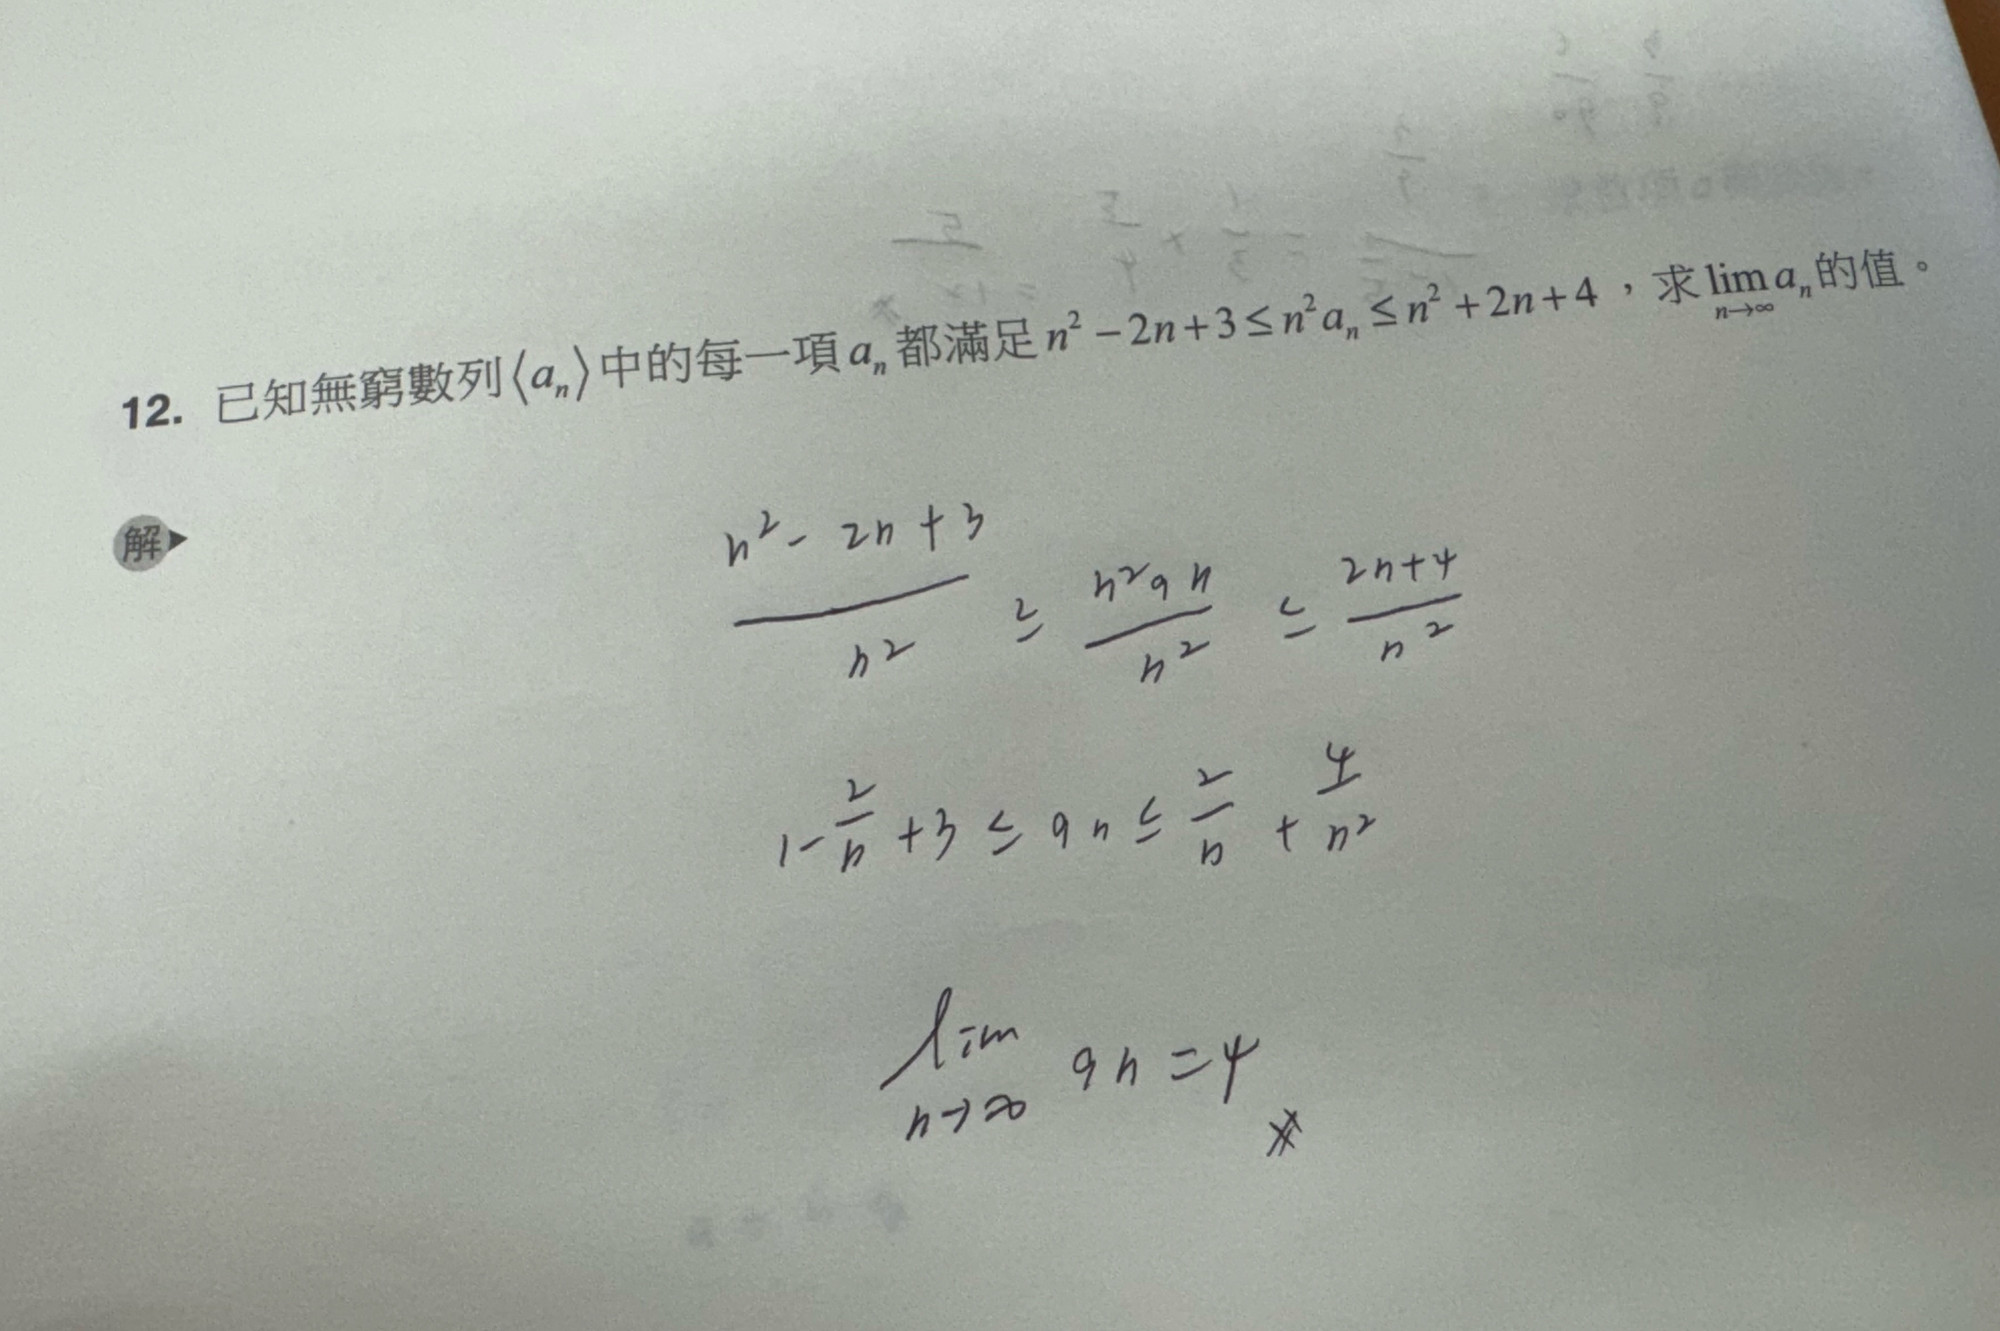 12. 已知無窮數列⟨aₙ⟩中的每一項 aₙ 都滿足 n² − 2n + 3 ≤ n²aₙ ≤ n² + 2n + 4，求 lim_{n→∞} aₙ 的值。
解▶
(n² - 2n + 3)/n² ≤ (n²an)/n² ≤ (2n+4)/n²
1 - 2/n + 3 ≤ an ≤ 2/n + 4/n²
lim_{n→∞} an = 4